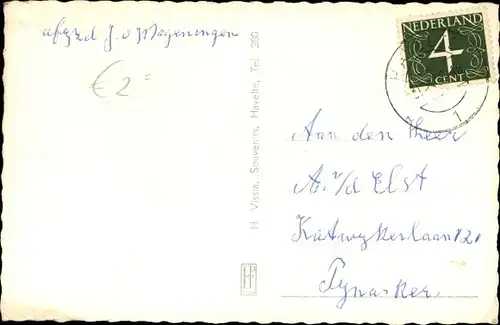 afz d J. v Wageningen
€ 2=
H Vissia, Souvenirs, Havelte, Tel. 260
NEDERLAND
4
CENT
1
Aan den Heer
A. v/d Elst
Katwykerlaan 121
Pynakker.